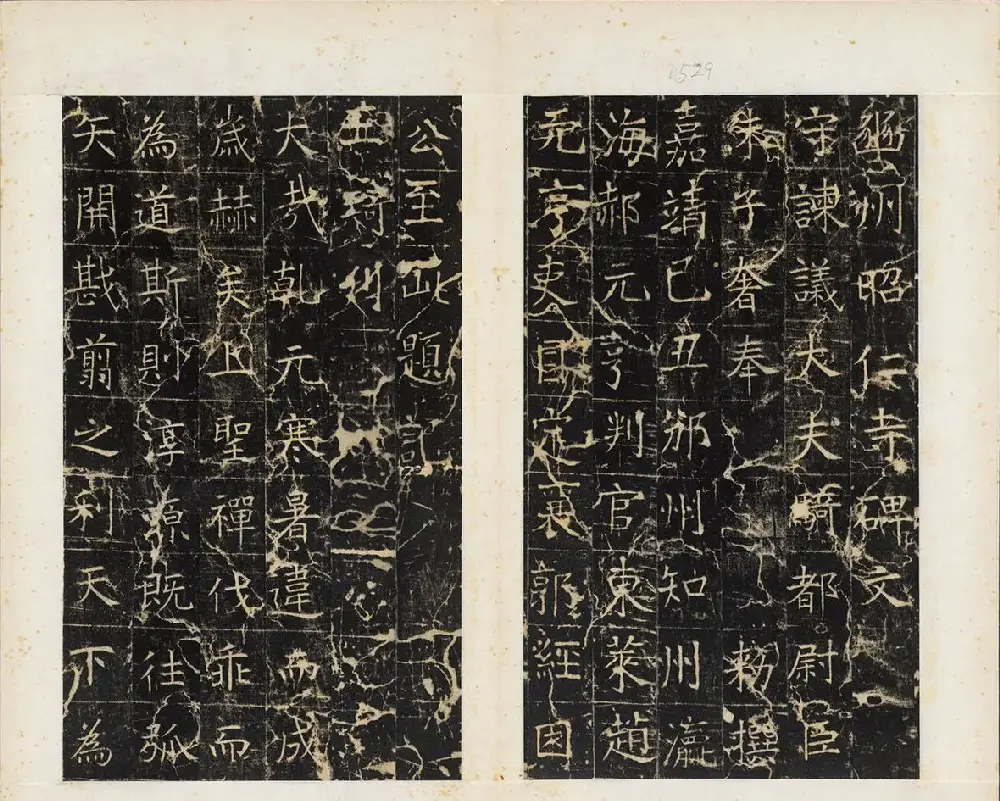 1529
豳州昭仁寺碑文
守諫議大夫騎都尉臣
朱子奢奉 勑撰
嘉靖己丑邠州知州瀛
海郝元亨判官東萊趙
元亨吏目定襄郭經因
公至此題記
大哉乹元寒暑違而成
歲赫矣上聖禪代乖而
為道斯則淳源既往弧
矢開戡翦之利天下為